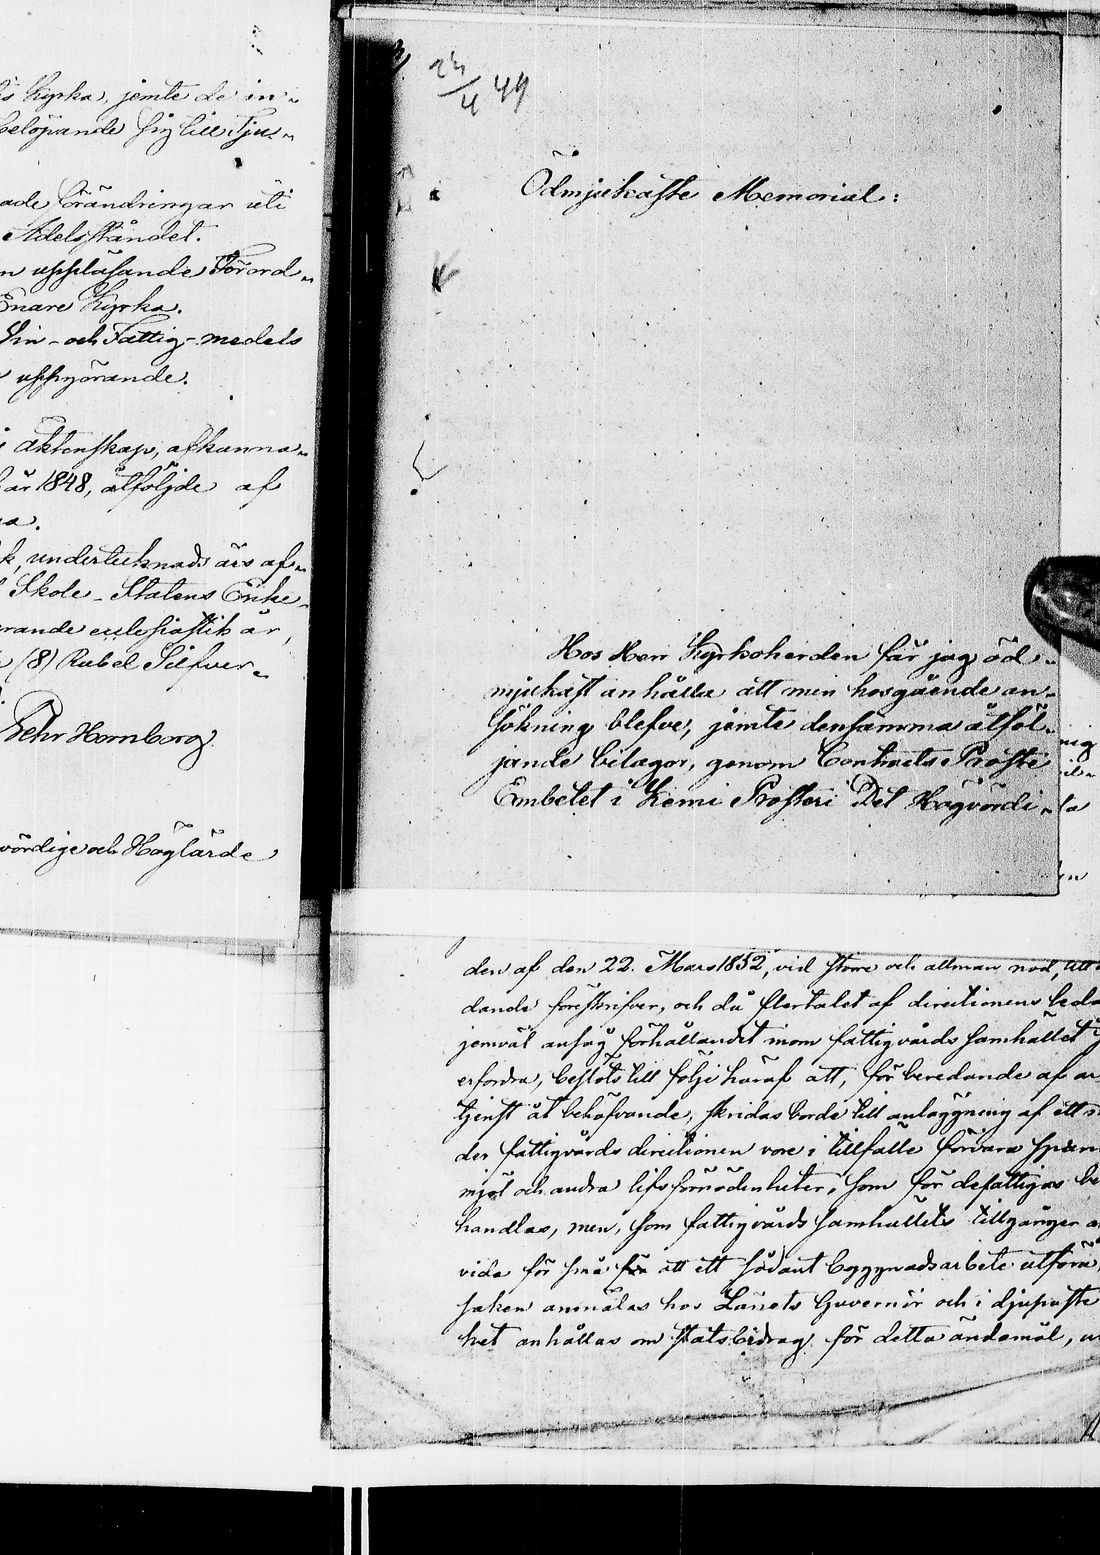 Kyrka, jemte de in-
belöpande sig till Tju-
ade förändringar uti
Adelsståndet.
n uppläsande Förord-
Enare Kyrka.
Vin- och Fattig-medels
uppgörande.
äktenskap, afkunna-
år 1848, åtföljde af
na.
k, undertecknads års af-
Skole-Statens Enke-
rande ecclesiastik år,
(8) Rubel Silfver-
Pehr Hornborg
vördige och Höglärde
23/4 49
Ödmjukaste Memorial:
Hos Herr Kyrkoherden får jag öd-
mjukast anhålla att min hosgående an-
sökning blefve, jemte densamma åtföl-
jande bilagor, genom Contracts Prosts
Embetet i Kemi Prosteri Det Högvördi-
den af den 22. Mars 1852, vid större och allmän nöd, till
dande föreskrifver, och då flertalet af directionens leda
jemväl ansåg förhållandet inom fattigvårds samhället
erfordra, beslöts till följe häraf att, för beredande af ar
tjenst åt behöfvande, skridas borde till anläggning af ett
der fattigvårds directionen vore i tillfälle förvara span
mjöl och andra lifsförnödenheter, som för de fattigas be
handlas, men, som fattigvårds samhällets tillgångar
vida för små för att ett sådant byggnadsarbete utföra,
saken anmälas hos Länets Guvernör och i djupaste
het anhållas om statsbidrag för detta ändamål,